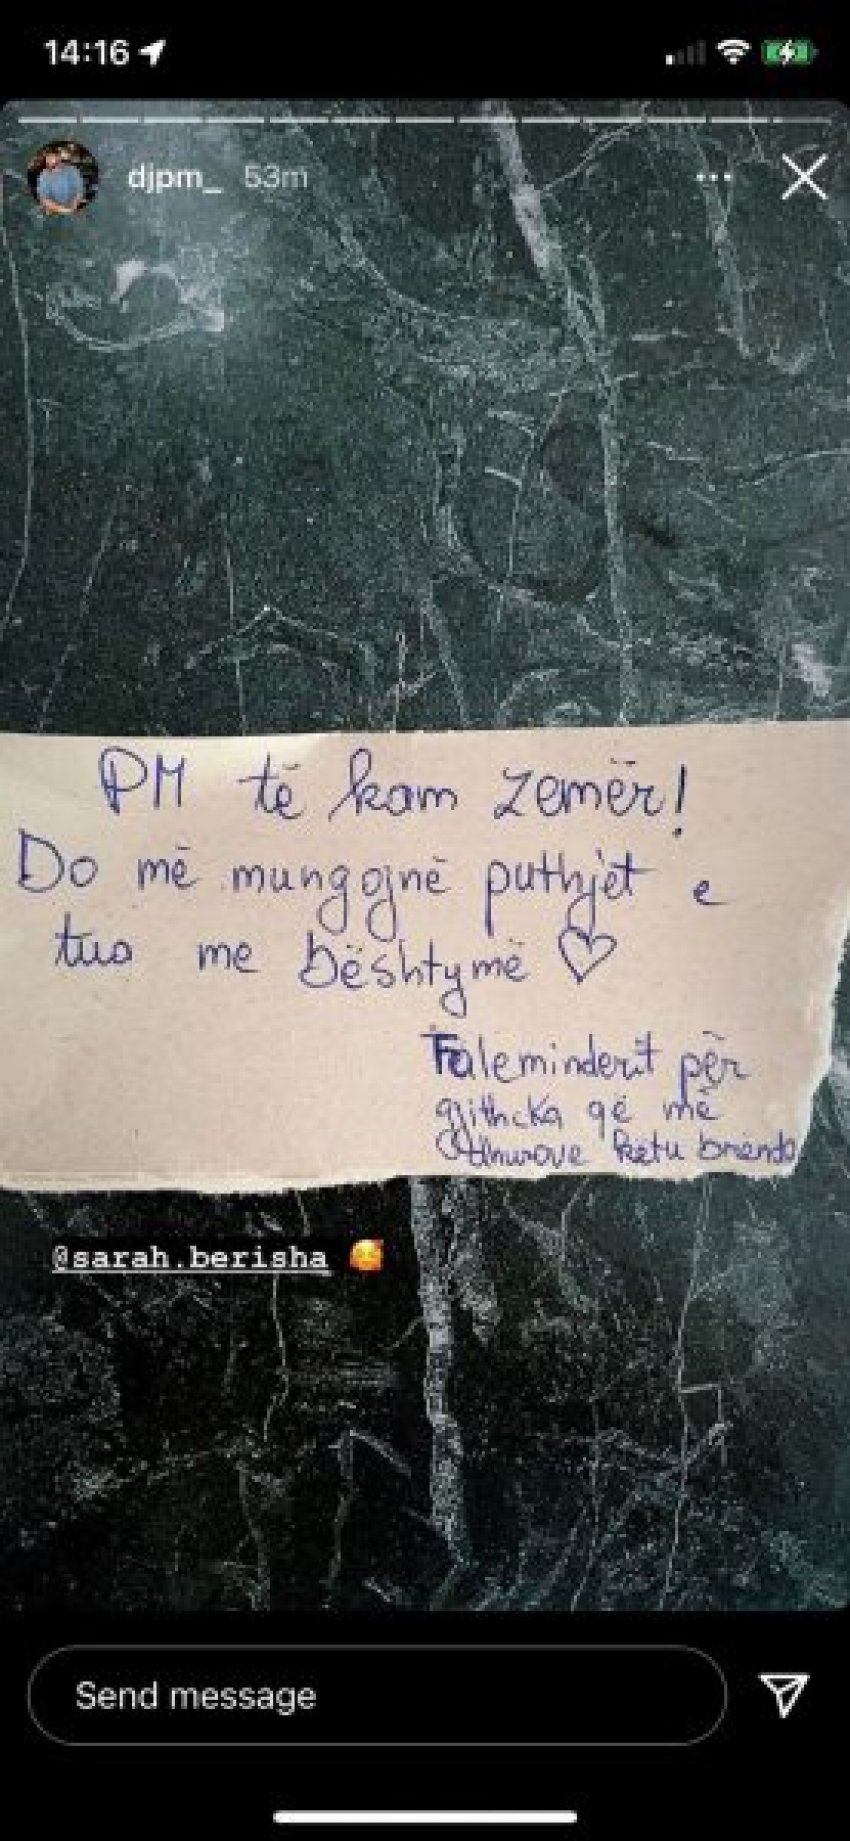 14:16
djpm_ 53m
PM të kam zemër!
Do më mungojnë puthjet e
tua me bështymë ♡
Faleminderit për
gjithcka që më
dhurove këtu brënda
@sarah.berisha 🥰
Send message